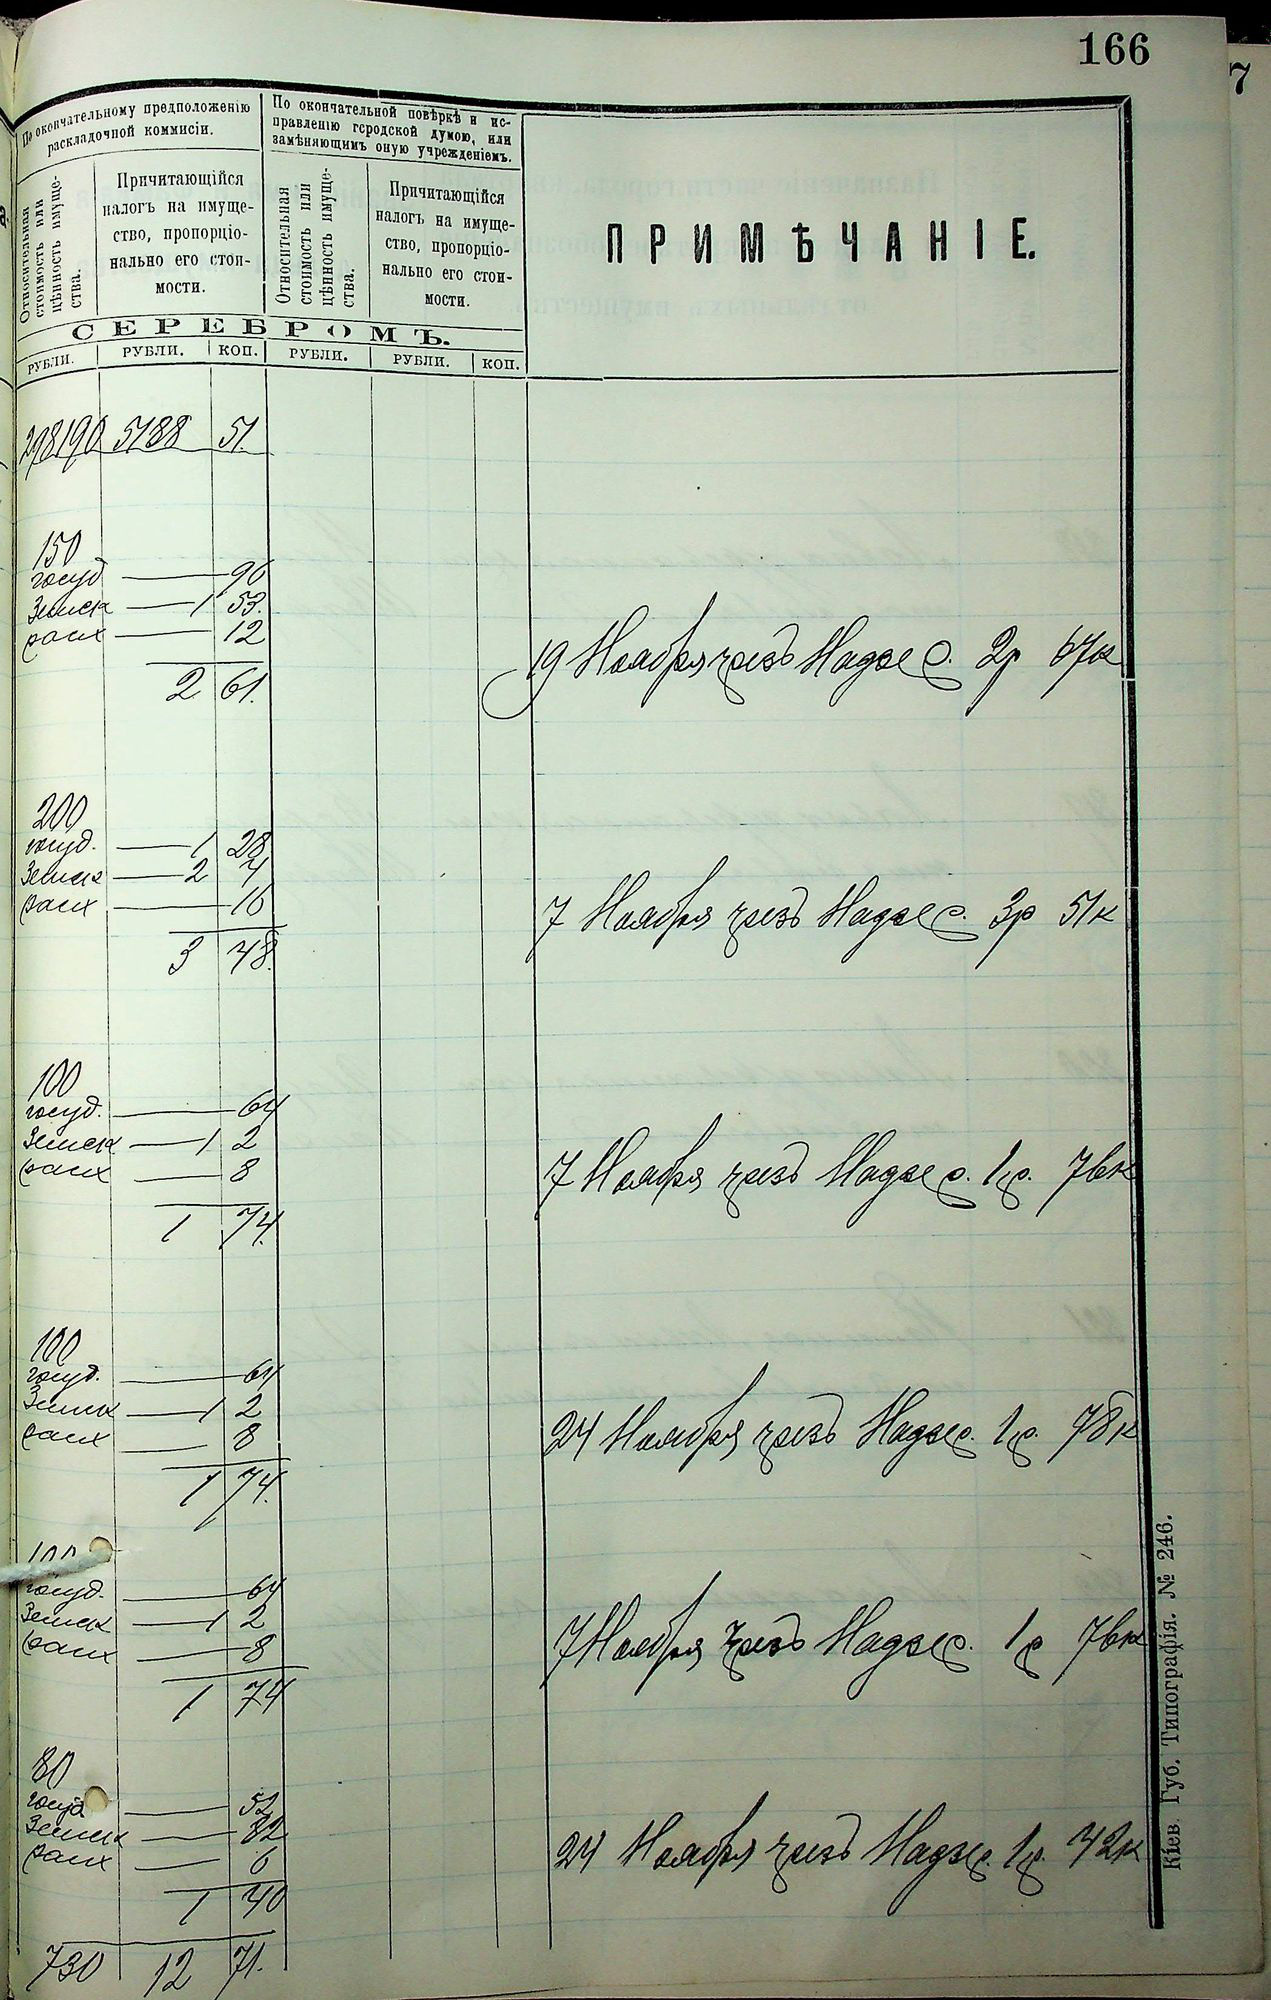 166
По окончательному предположенію
раскладочной коммисіи.
По окончательной повѣркѣ и ис-
правленію городской думою, или
замѣняющимъ оную учрежденіемъ.
Относительная
стоимость или
цѣнность имуще-
ства.
Причитающійся
налогъ на имуще-
ство, пропорціо-
нально его стои-
мости.
Относительная
стоимость или
цѣнность имуще-
ства.
Причитающійся
налогъ на имуще-
ство, пропорціо-
нально его стои-
мости.
ПРИМѢЧАНІЕ.
СЕРЕБРОМЪ.
РУБЛИ. РУБЛИ. КОП. РУБЛИ. РУБЛИ. КОП.
298190 5188 51.
150
госуд 96
Земск 1 53.
расх 12
2 61.
19 Ноября чрезъ Надзе 2р 67к
200
госуд. 1 28
Земск 2 4
расх 16
3 48.
7 Ноября чрезъ Надзе 3р 51к
100
госуд. 64
Земск 1 2
расх 8
1 74.
7 Ноября чрезъ Надзе 1р. 76к
100
госуд. 64
Земск 1 2
расх 8
1 74.
24 Ноября чрезъ Надзе 1р. 78к
100
госуд. 64
Земск 1 2
расх 8
1 74
7 Ноября чрезъ Надзе 1р 76к
80
госуд 52
Земск 82
расх 6
1 40
24 Ноября чрезъ Надзе 1р. 42к
730 12 71.
Кіев. Губ. Типографія. № 246.
7